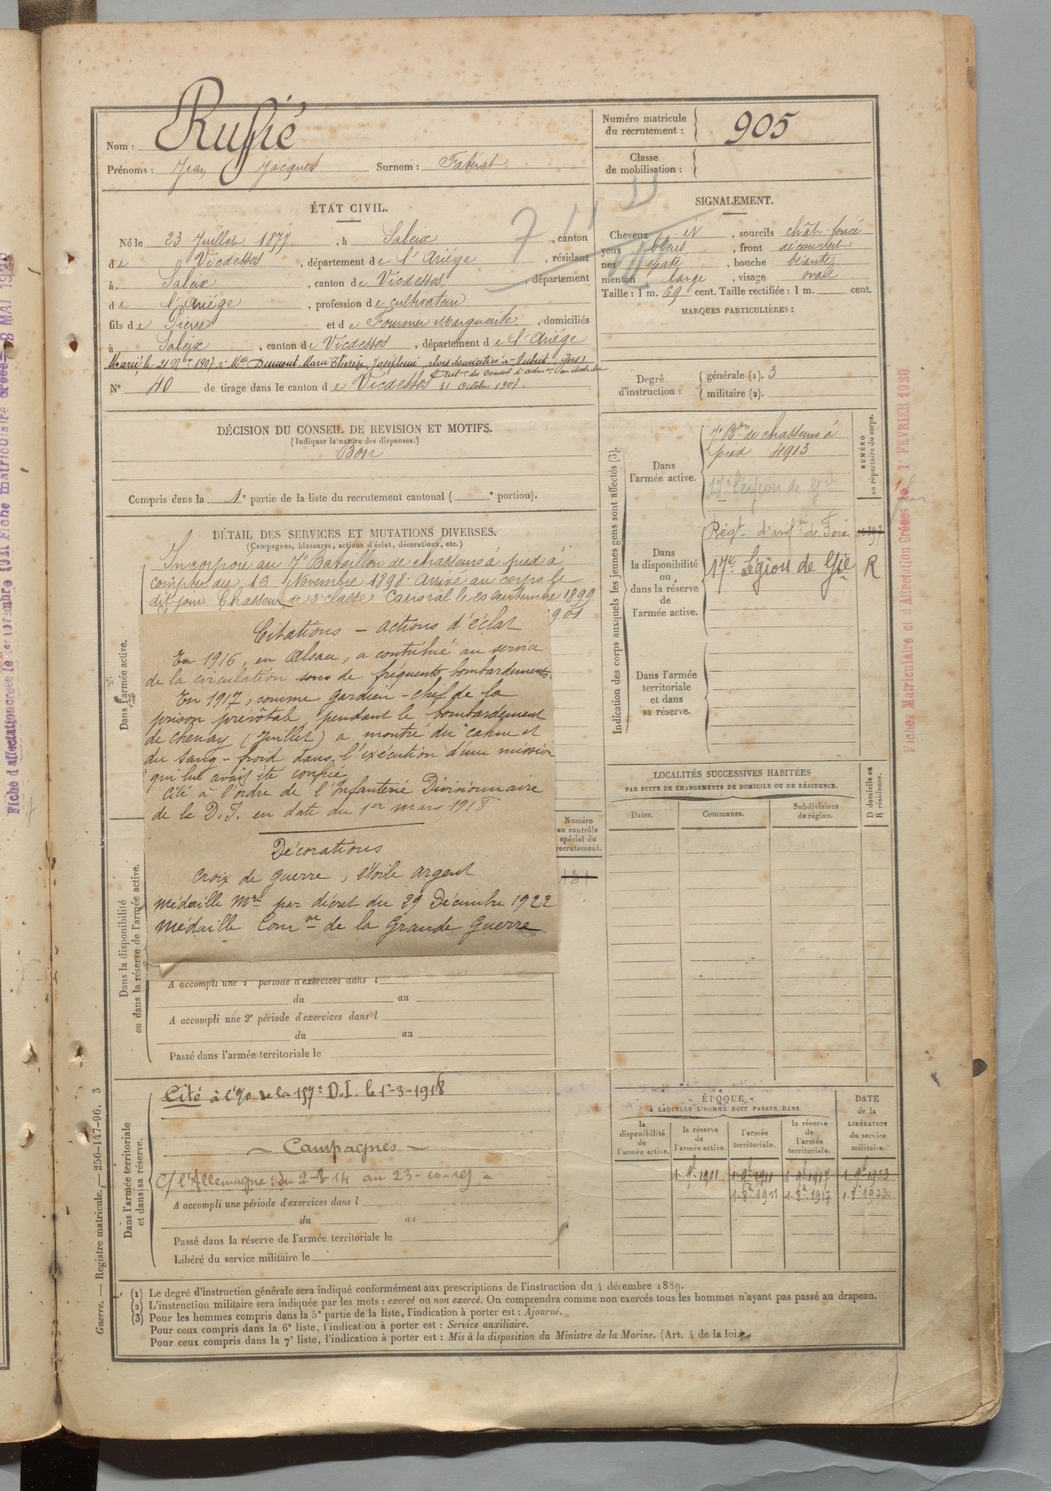 Nom : Ruffié
Prénoms : Jean Jacques Surnom : Fatérat
Numéro matricule du recrutement : 905
Classe de mobilisation :
ÉTAT CIVIL.
Né le 23 Juillet 1877, à Saleix, canton
de Vicdessos, département de l'Ariège, résidant
à Saleix, canton de Vicdessos, département
de l'Ariège, profession de cultivateur
fils de Pierre et de Fournier Marguerite, domiciliés
à Saleix, canton de Vicdessos, département de l'Ariège
Marié le 21 9bre 1907 à Mlle Dumont Marie Thérèse Joséphine
31 Octobre 1907.
N° 40 de tirage dans le canton de Vicdessos
SIGNALEMENT.
Cheveux et sourcils chât-foncé
yeux bleus, front découvert
nez épaté, bouche béante
menton large, visage ovale
Taille : 1 m. 69 cent. Taille rectifiée : 1 m. cent.
MARQUES PARTICULIÈRES :
Degré d'instruction : générale (1). 3
militaire (2).
DÉCISION DU CONSEIL DE REVISION ET MOTIFS.
(Indiquer la nature des dispenses.)
Bon
Compris dans la 1e partie de la liste du recrutement cantonal ( e portion).
DÉTAIL DES SERVICES ET MUTATIONS DIVERSES.
(Campagnes, blessures, actions d'éclat, décorations, etc.)
Incorporé au 7e Bataillon de chasseurs à pied à
compter du 10 Novembre 1898. Arrivé au corps le
dit jour Chasseur de 2e classe. Caporal le 20 septembre 1899
901
Citations – actions d'éclat
En 1916, en Alsace, a contribué au service
de la circulation sous de fréquents bombardements.
En 1917, comme gardien-chef de la
prison prévôtale, pendant le bombardement
de Chenay (Juillet) a montré du calme et
du sang-froid dans l'exécution d'une mission
qui lui avait été confiée
Cité à l'ordre de l'Infanterie Divisionnaire
de la D.I. en date du 1er mars 1918
Décorations
Croix de guerre, étoile argent
médaille Mre par décret du 29 Décembre 1922
Médaille Comve de la Grande Guerre
Dans l'armée active.
Dans la disponibilité ou dans la réserve de l'armée active.
Numéro au contrôle spécial du recrutement.
121
A accompli une 1e période d'exercices dans l
du au
A accompli une 2e période d'exercices dans l
du au
Passé dans l'armée territoriale le
Dans l'armée territoriale et dans sa réserve.
Cité à l'o/o de la 157e D.I. le 1-3-1918
– Campagnes –
C/ l'Allemagne : du 2-8-14 au 23-10-19
A accompli une période d'exercices dans l
du au
Passé dans la réserve de l'armée territoriale le
Libéré du service militaire le
Indication des corps auxquels les jeunes gens sont affectés (3).
NUMÉRO au répertoire du corps.
Dans l'armée active.
7e Bon de chasseurs à
pied 4913
17e Légion de Gie
Dans la disponibilité ou dans la réserve de l'armée active.
Régt d'infie de Foix
17e Légion de Gie R
Dans l'armée territoriale et dans sa réserve.
LOCALITÉS SUCCESSIVES HABITÉES
PAR SUITE DE CHANGEMENTS DE DOMICILE OU DE RÉSIDENCE.
D domicile ou R résidence.
Dates. Communes. Subdivisions de région.
ÉPOQUE
A LAQUELLE L'HOMME DOIT PASSER DANS
DATE de la LIBÉRATION du service militaire.
la disponibilité de l'armée active.
la réserve de l'armée active.
l'armée territoriale.
la réserve de l'armée territoriale.
1-9bre-1901 1-9bre-1911 1-9bre-1917 1-9bre-1923
1-8bre-1911 1-8bre-1917 1-8bre-1923
(1) Le degré d'instruction générale sera indiqué conformément aux prescriptions de l'instruction du 4 décembre 1889.
(2) L'instruction militaire sera indiquée par les mots : exercé ou non exercé. On comprendra comme non exercés tous les hommes n'ayant pas passé au drapeau.
(3) Pour les hommes compris dans la 5e partie de la liste, l'indication à porter est : Ajourné.
Pour ceux compris dans la 6e liste, l'indication à porter est : Service auxiliaire.
Pour ceux compris dans la 7e liste, l'indication à porter est : Mis à la disposition du Ministre de la Marine. (Art. 4 de la loi.)
Guerre. — Registre matricule. — 256-147-96. 3
Fiches Matriculaire et d'Affectation Créées le 1 FÉVRIER 1930